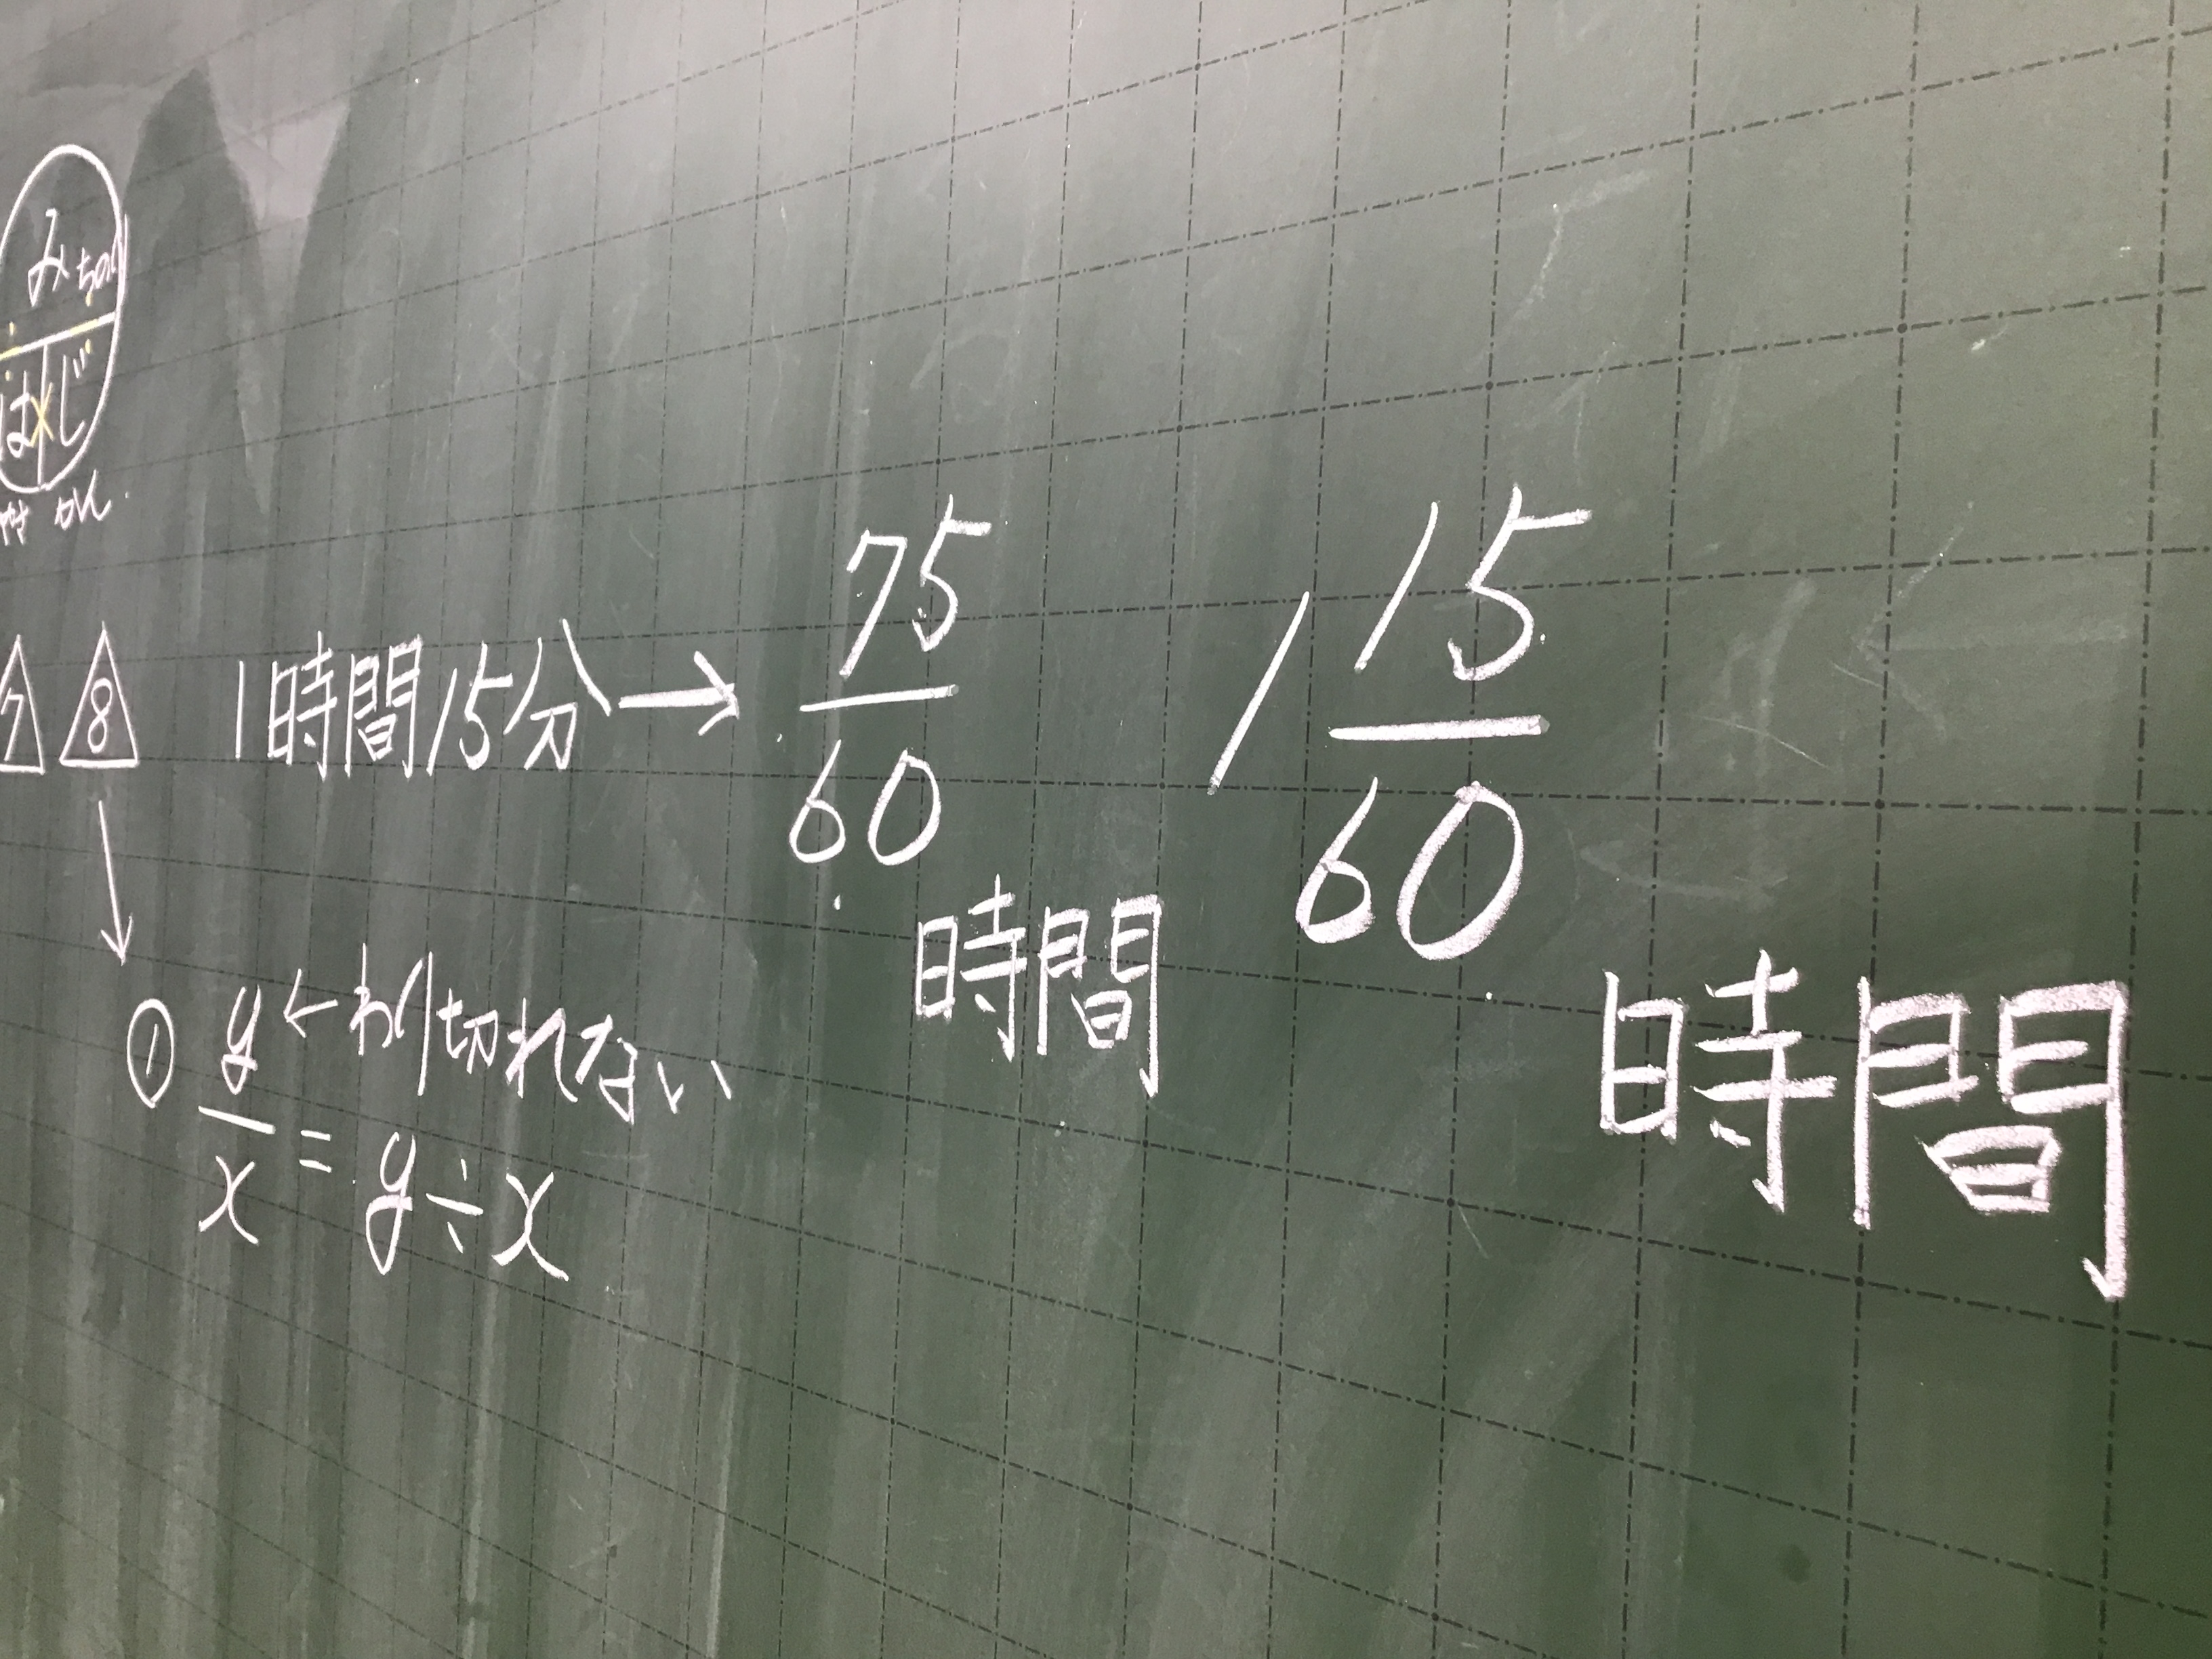 みちのり
は×じ
やさ かん
7 8
1時間15分→ 75/60 時間 1 15/60 時間
① y ← わり切れない
y/x = y÷x